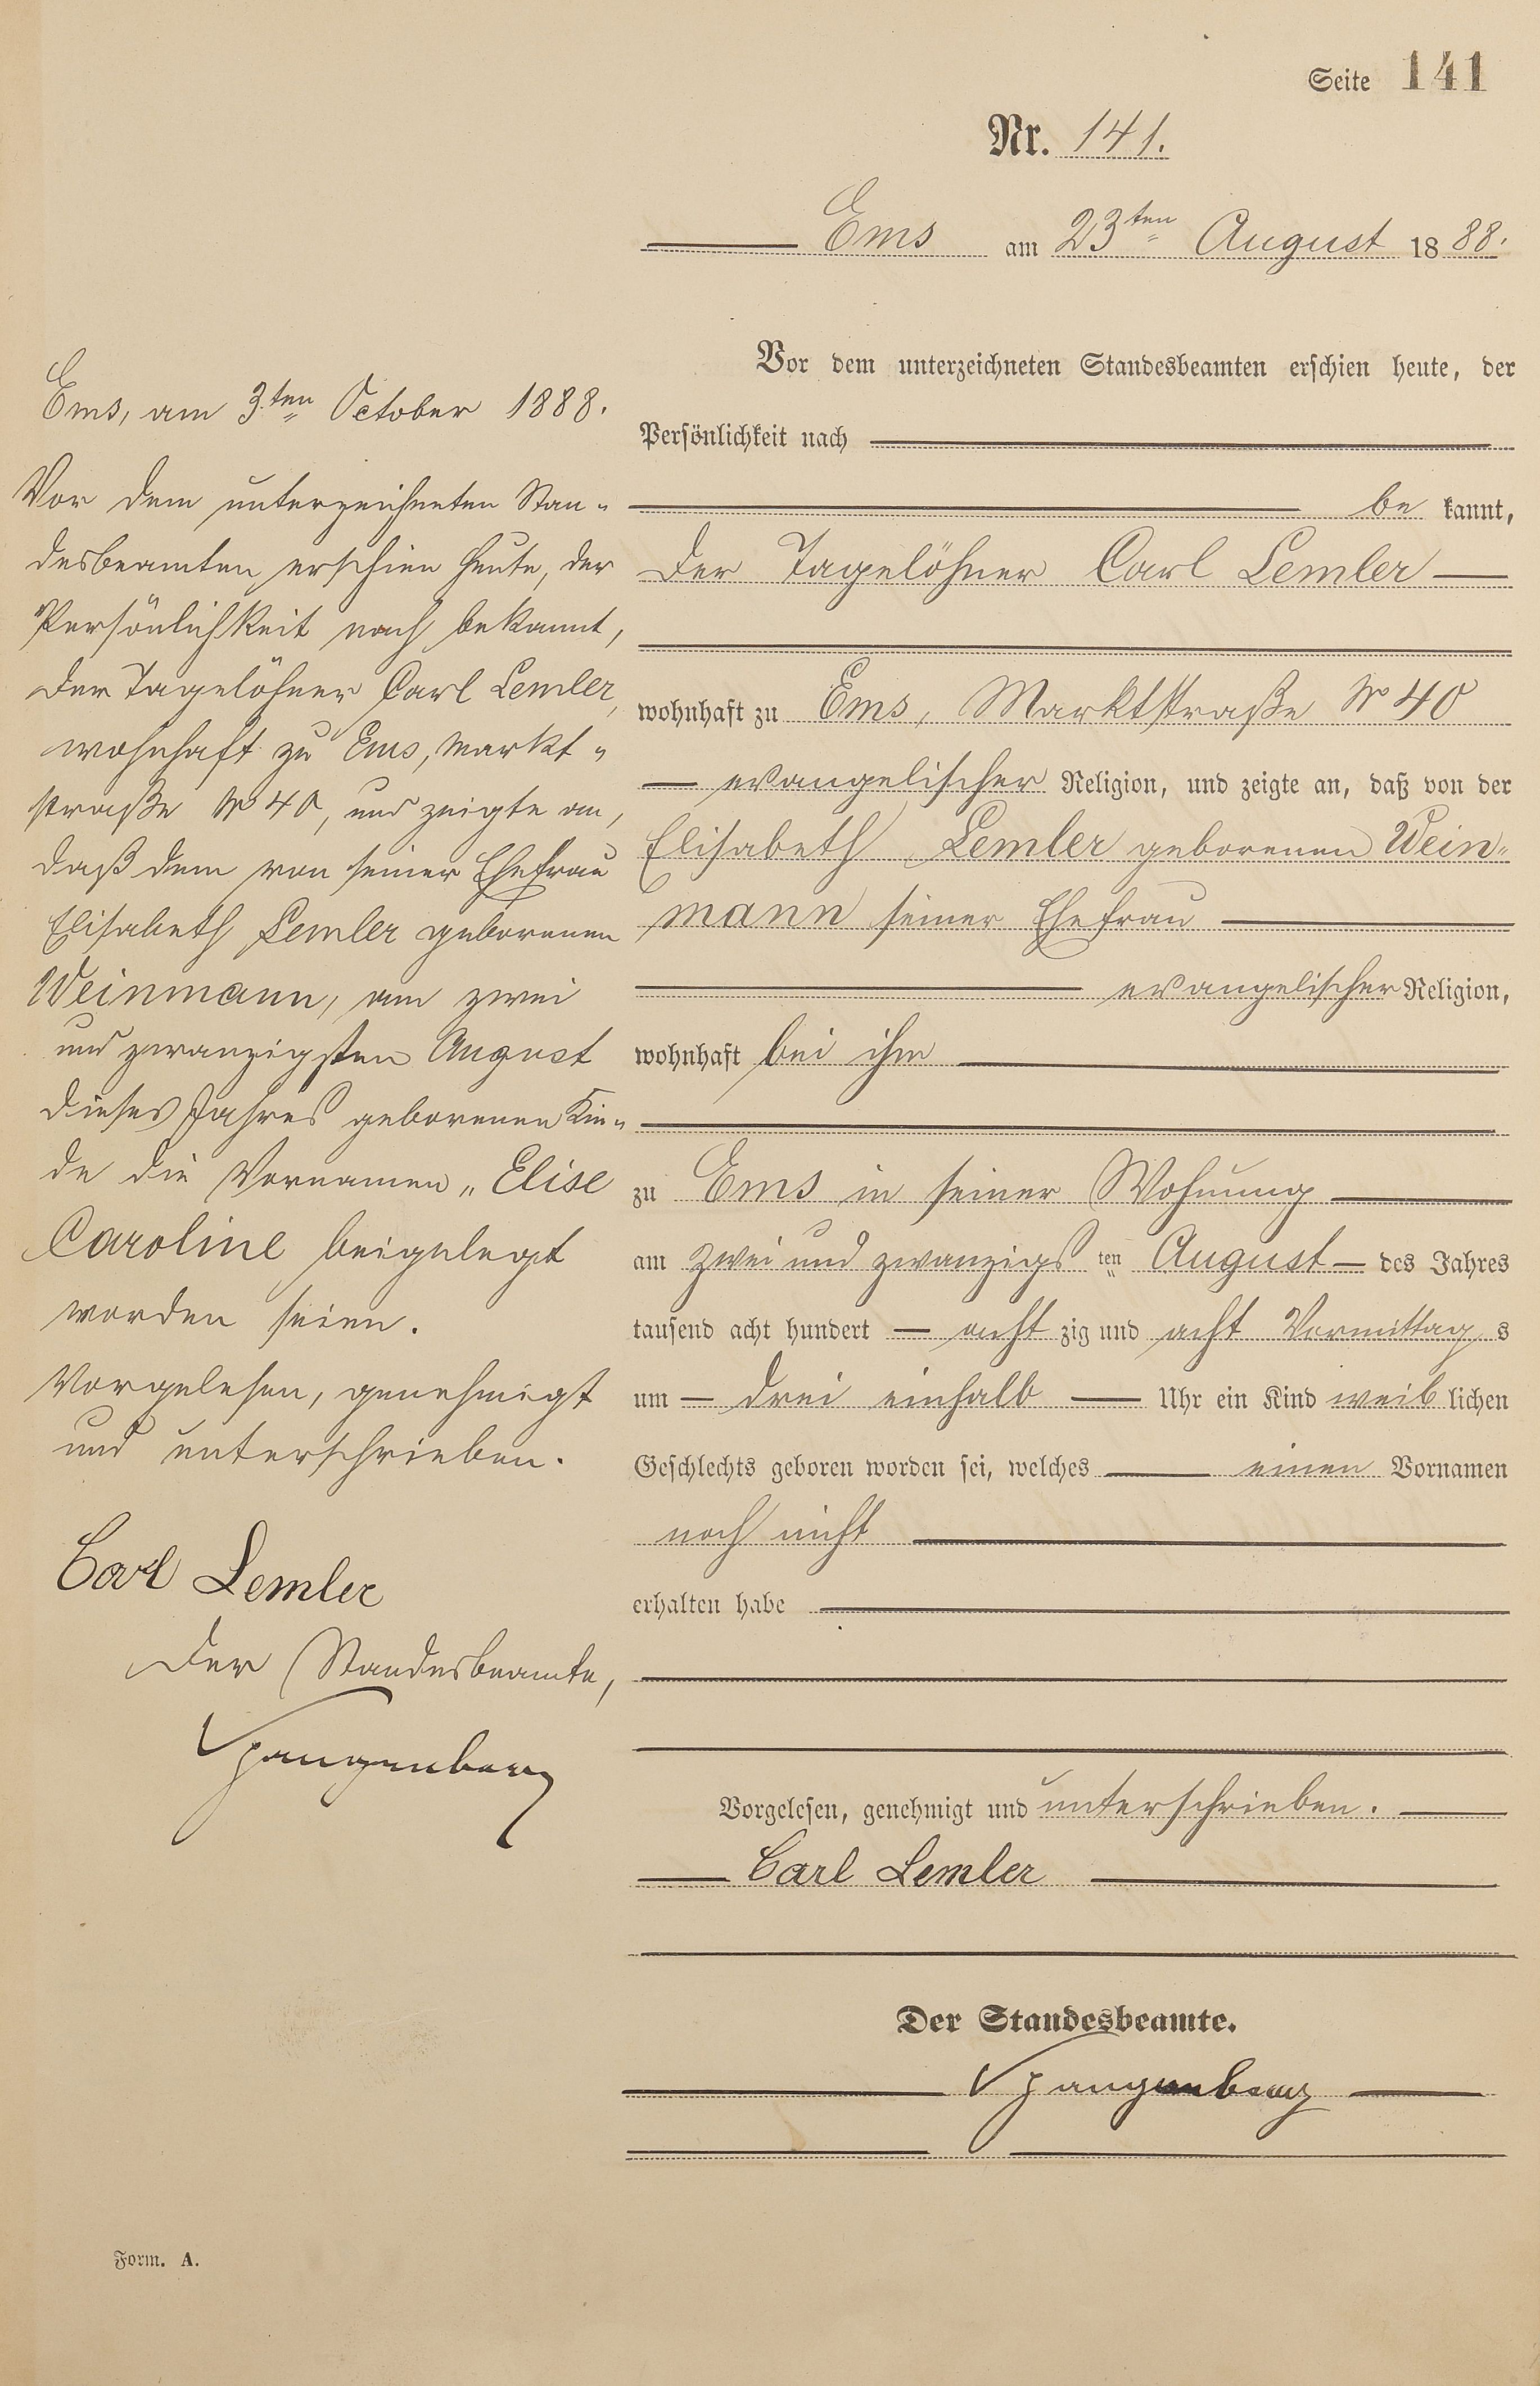 Seite 141
Nr. 141.
Ems am 23ten August 1888.
Vor dem unterzeichneten Standesbeamten erschien heute, der
Persönlichkeit nach
be kannt,
der Tagelöhner Carl Lemler
wohnhaft zu Ems, Marktstraße No 40
evangelischer Religion, und zeigte an, daß von der
Elisabeth Lemler geborenen Wein-
mann seiner Ehefrau
evangelischer Religion,
wohnhaft bei ihm
zu Ems in seiner Wohnung
am zwei und zwanzigs ten August des Jahres
tausend acht hundert acht zig und acht Vormittag s
um drei einhalb Uhr ein Kind weib lichen
Geschlechts geboren worden sei, welches einen Vornamen
noch nicht
erhalten habe
Vorgelesen, genehmigt und unterschrieben.
Carl Lemler
Der Standesbeamte.
Spangenberg
Ems, am 3ten October 1888.
Vor dem unterzeichneten Stan-
desbeamten erschien heute, der
Persönlichkeit nach bekannt,
der Tagelöhner Carl Lemler,
wohnhaft zu Ems, Markt-
straße No 40, und zeigte an,
daß dem von seiner Ehefrau
Elisabeth Lemler geborenen
Weinmann, am zwei
und zwanzigsten August
dieses Jahres geborenen Kin-
de die Vornamen „Elise
Caroline beigelegt
worden seien.
Vorgelesen, genehmigt
und unterschrieben.
Carl Lemler
Der Standesbeamte,
Spangenberg
Form. A.